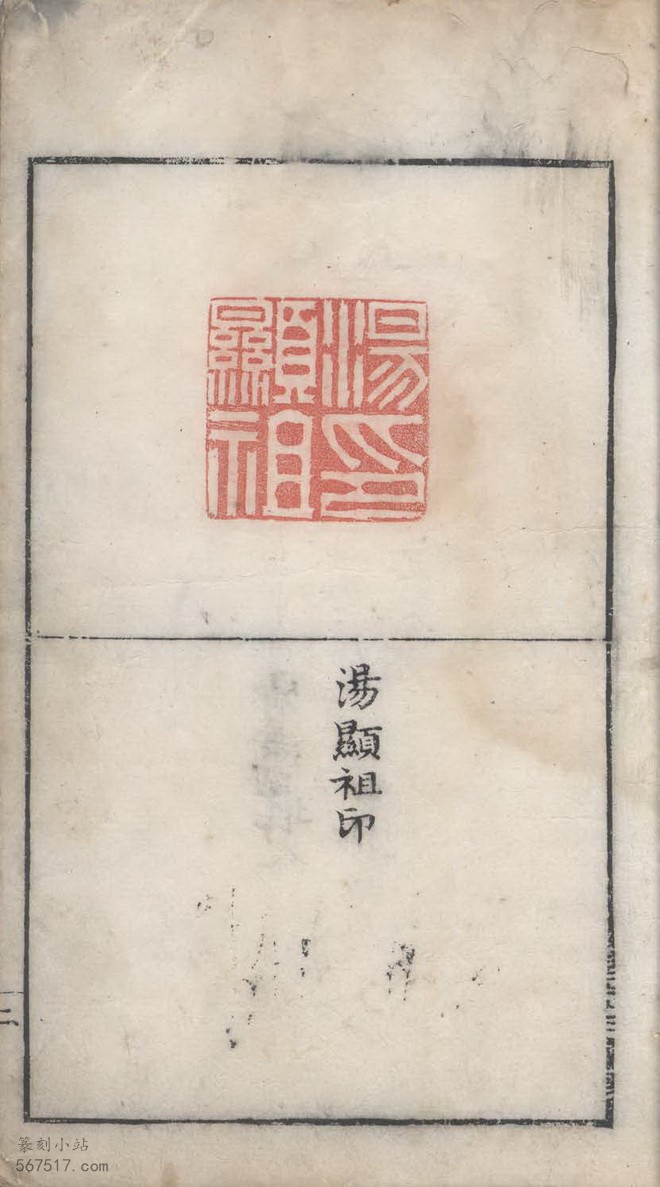 湯顯祖印
湯顯祖印
二
篆刻小站
567517.com